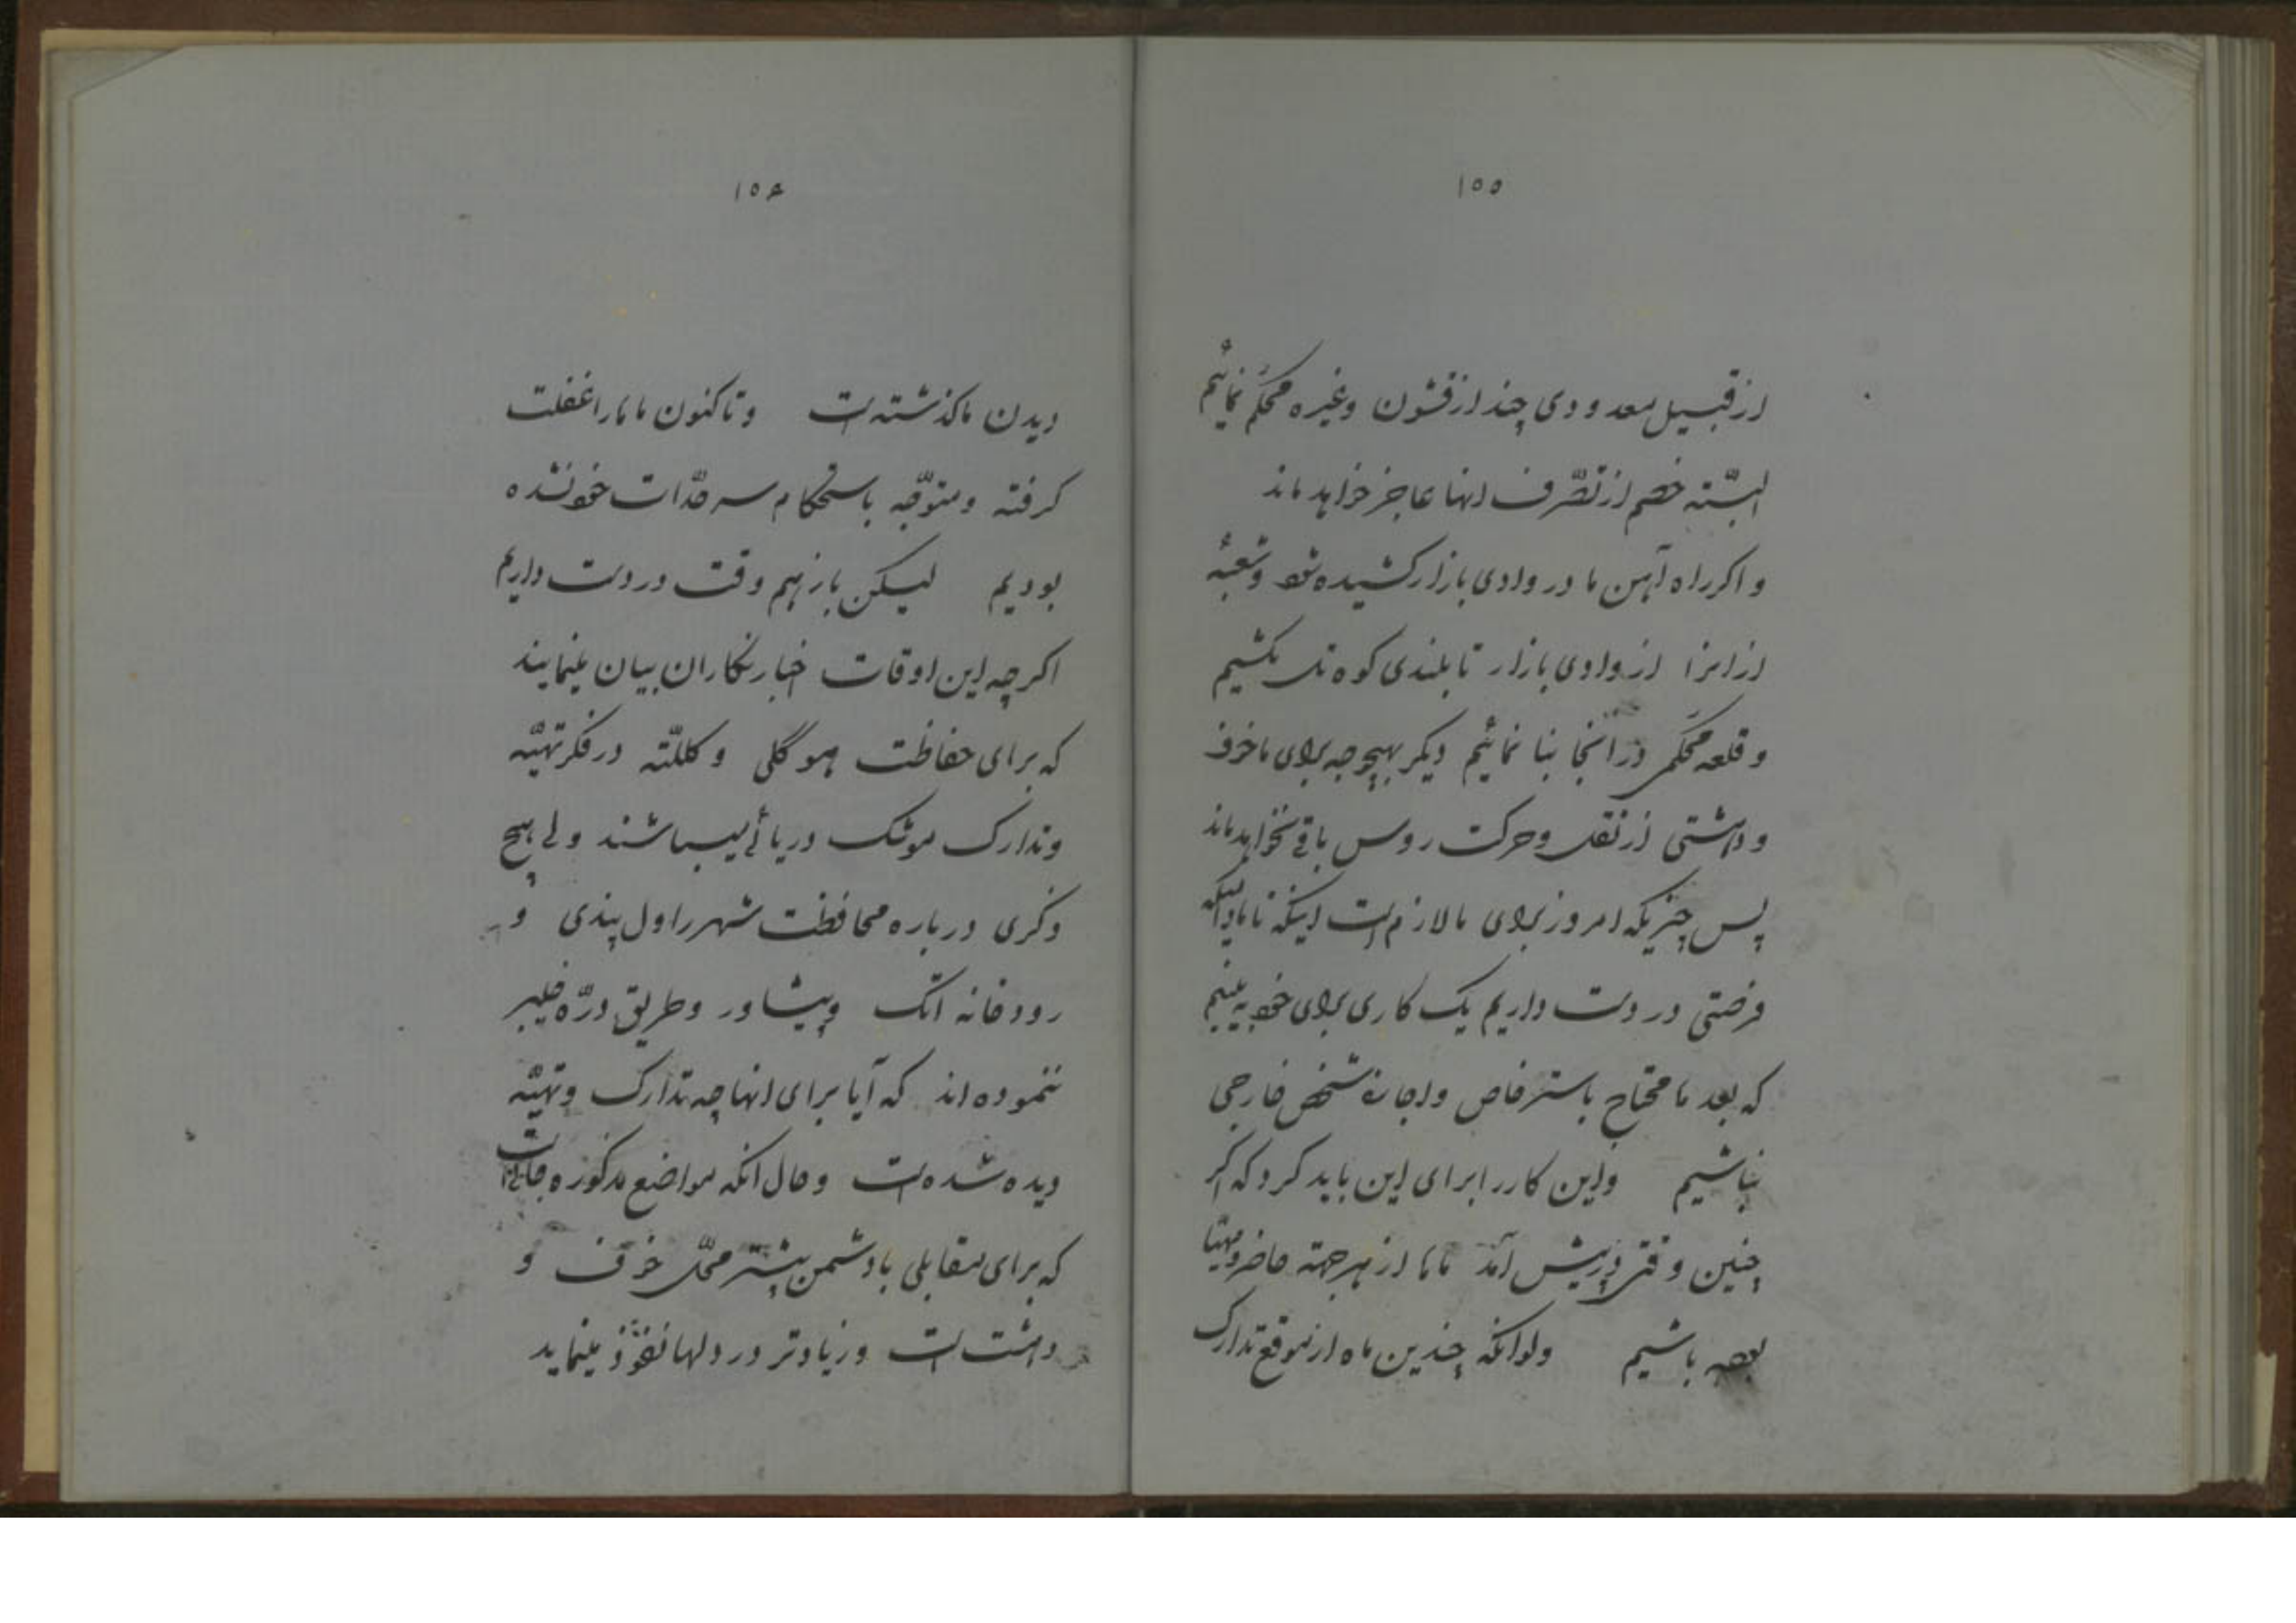 ۱۵۵
از قبیل معدودی چند از قشون وغیره محکم نمائیم
البتّه خصم از تصّرف انها عاجز خواهد ماند
و اکر راه آهن ما در وادی بازار کشیده شود و شعبهٔ
از انرا از وادی بازار تا بلندی کوه تک بکشیم
و قلعه محکمی در انجا بنا نمائیم دیکر بهیچوجه برای ما خوف
و دهشتی از نقل و حرکت روس باقی نخواهد ماند
پس چیزیکه امروز برای ما لازم است اینکه تا ما
فرصتی در دست داریم یک کاری برای خود به بینیم
که بعد ما محتاج باسترخاص و اجازهٔ شخص خارجی
نباشیم واین کار را برای این باید کرد که اکر
چنین وقتی درپیش آمد تا ما از هر جهته حاضر و مهیّا
بوده باشیم ولو انکه چندین ماه از موقع تدارک
۱۵۶
دیدن ما کذشته است و تا کنون ما را غفلت
کرفته و متوجّه باستحکام سرحدّات خود نشده
بودیم لیکن باز هم وقت در دست داریم
اکرچه این اوقات اخبار نکاران بیان مینمایند
که برای حفاظت هوگلی و کلکتّه در فکر تهیّه
و تدارک موشک دریائی میباشند ولی هیچ
ذکری درباره محافظت شهر راول پندی و
رودخانه اتک وپیشاور وطریق درّه خیبر
ننموده اند که آیا برای انها چه تدارک و تهیّه
دیده شده است و حال انکه مواضع مذکوره جائی است
که برای مقابلی با دشمن بیشتر محلّ خوف و
دهشت است و زیادتر در دلها نفوذ مینماید